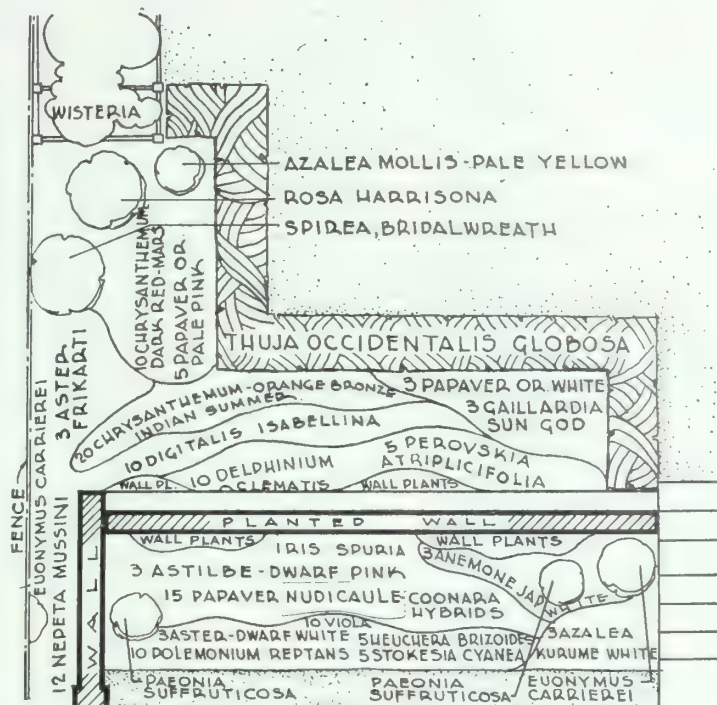 WISTERIA
AZALEA MOLLIS-PALE YELLOW
ROSA HARRISONA
SPIREA, BRIDALWREATH
10 CHRYSANTHEMUM
DARK RED-MARS
5 PAPAVER OR.
PALE PINK
THUJA OCCIDENTALIS GLOBOSA
3 ASTER
FRIKARTI
20 CHRYSANTHEMUM-ORANGE BRONZE
INDIAN SUMMER
3 PAPAVER OR WHITE
3 GAILLARDIA
SUN GOD
10 DIGITALIS ISABELLINA
5 PEROVSKIA
ATRIPLICIFOLIA
WALL PL.
10 DELPHINIUM
CLEMATIS
WALL PLANTS
FENCE
EUONYMUS CARRIEREI
12 NEPETA MUSSINI
WALL
PLANTED WALL
WALL PLANTS
IRIS SPURIA
WALL PLANTS
3 ANEMONE JAP. WHITE
3 ASTILBE-DWARF PINK
15 PAPAVER NUDICAULE COONARA
HYBRIDS
10 VIOLA
3 ASTER-DWARF WHITE
5 HEUCHERA BRIZOIDES
3 AZALEA
KURUME WHITE
10 POLEMONIUM REPTANS
5 STOKESIA CYANEA
PAEONIA
SUFFRUTICOSA
PAEONIA
SUFFRUTICOSA
EUONYMUS
CARRIEREI